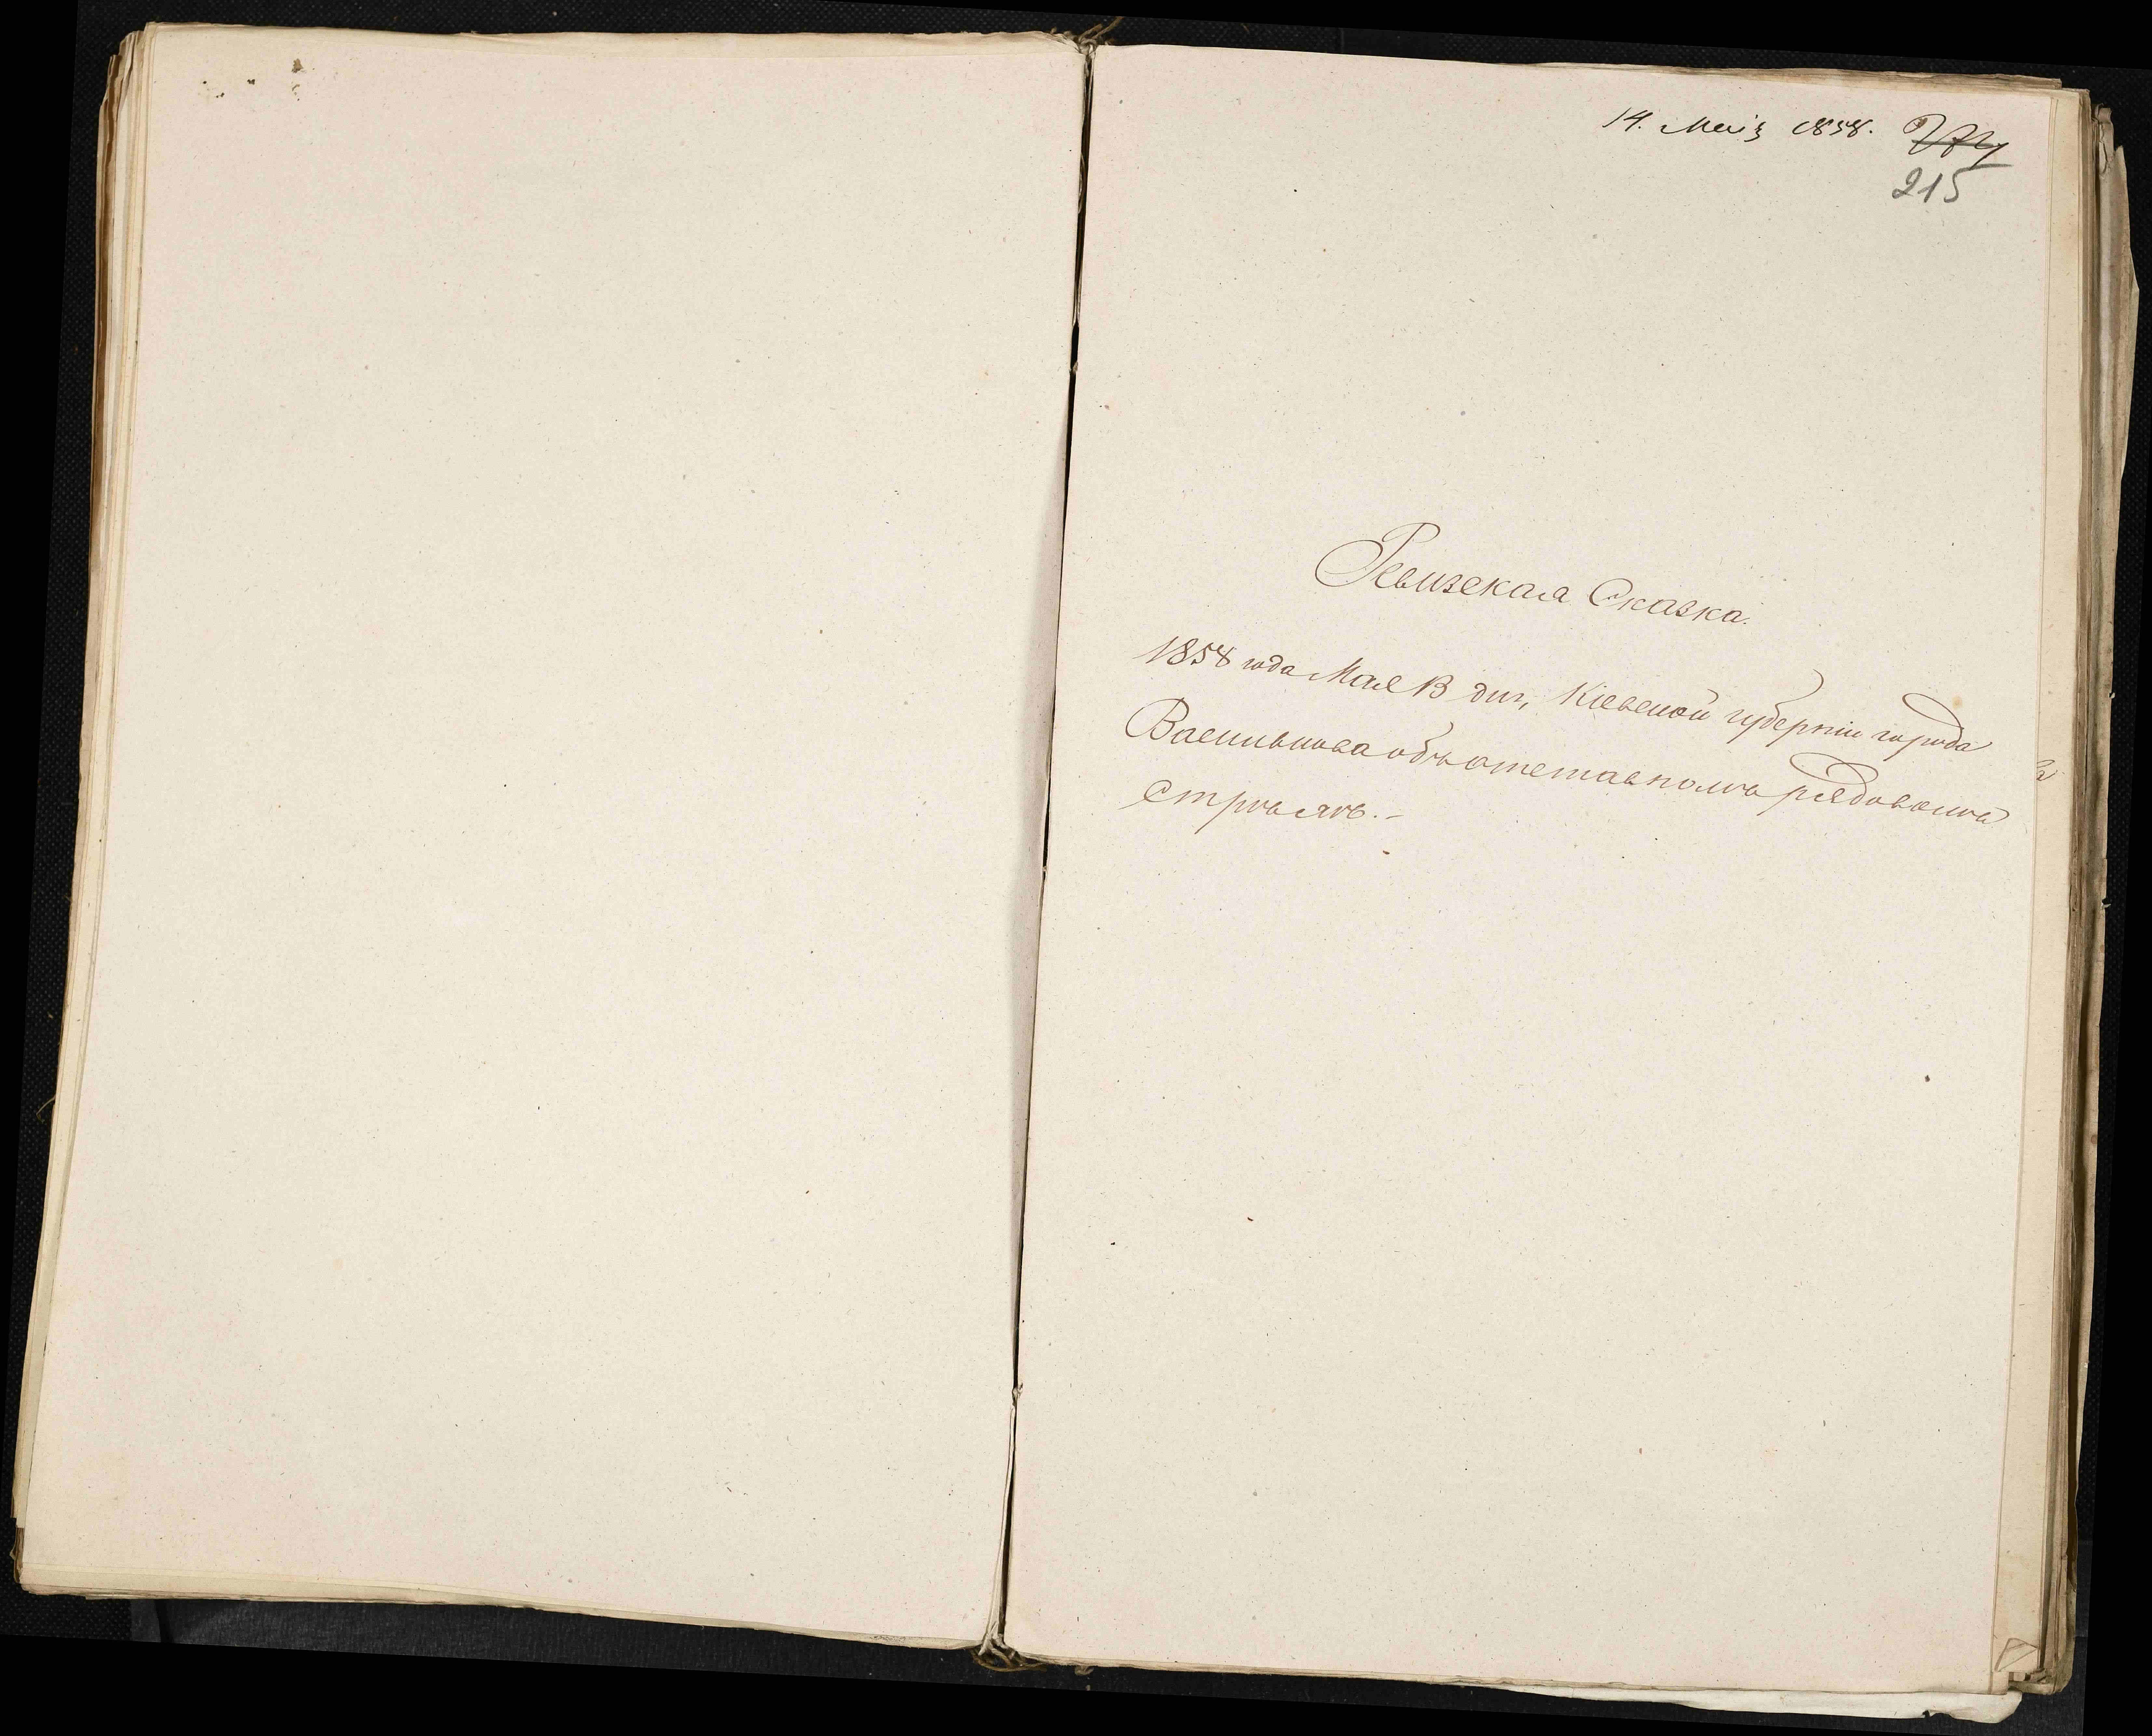 14. Маія 1858.
215
Ревизская Сказка.
1858 года Мая 13 дня, Кіевской губерніи города
Василькова объ отставномъ рядовомъ
стрѣлкѣ.-